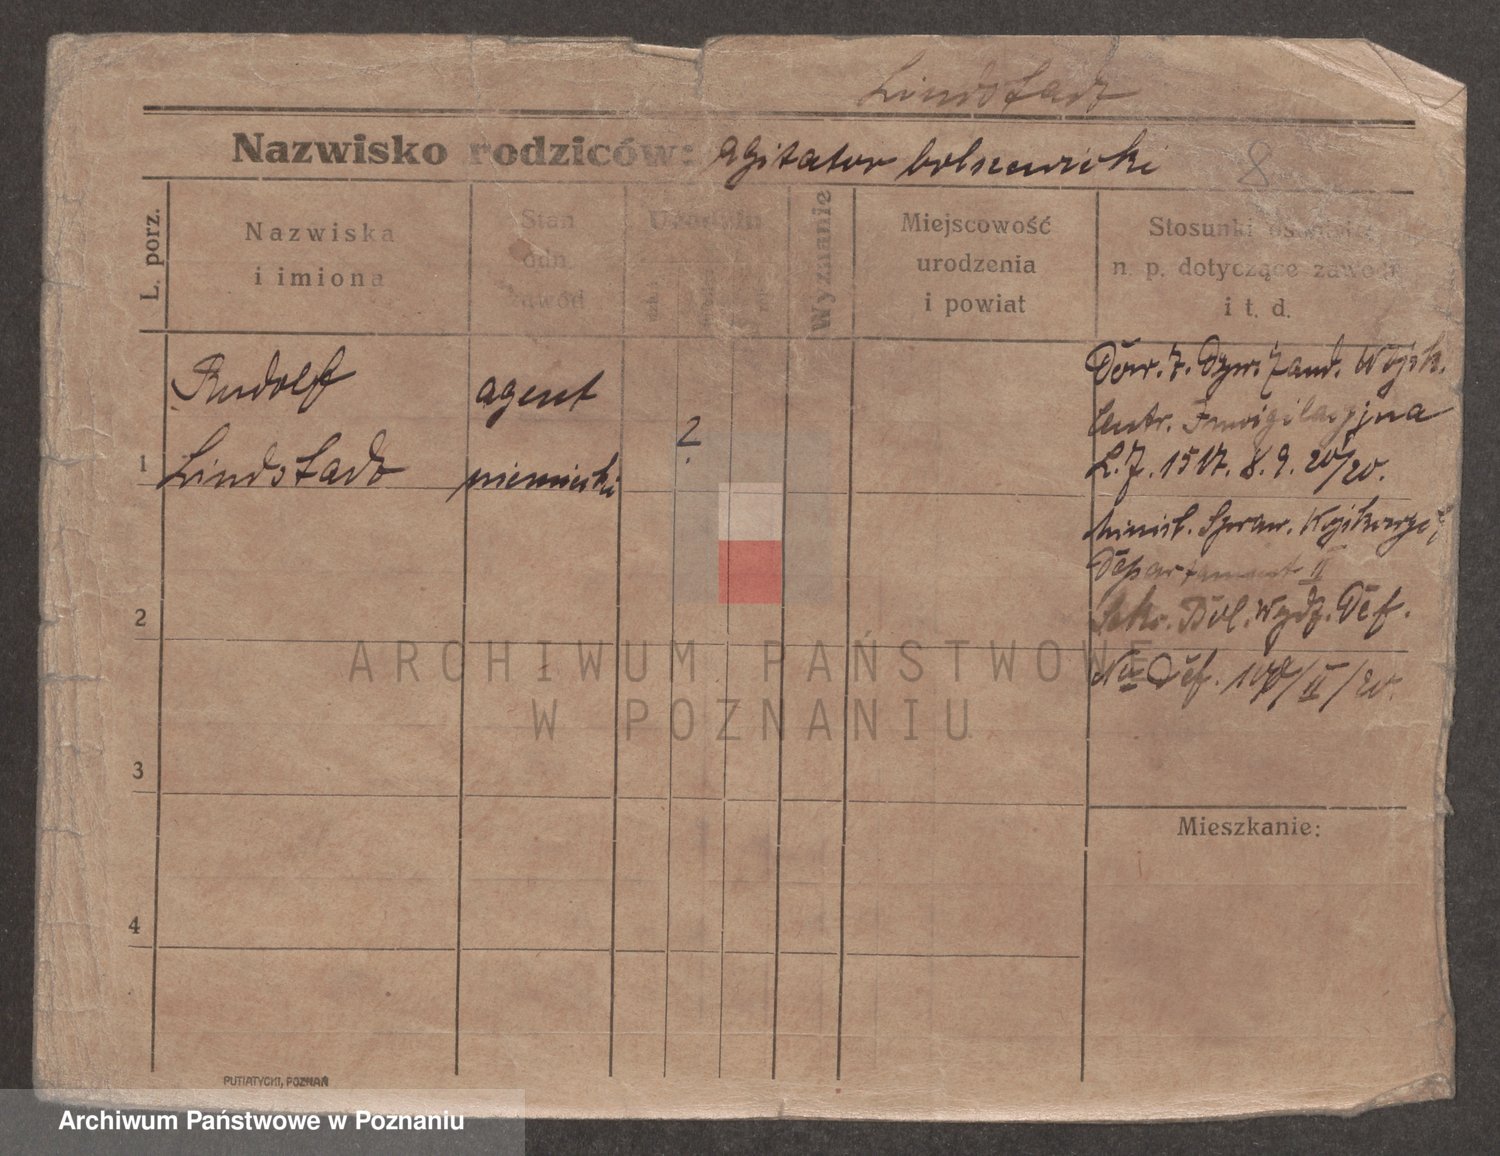 Lindstadt
Nazwisko rodziców: agitator bolszewicki 8
L. porz.
Nazwiska
i imiona
Stan
odn.
zawód
Urodzin
Wyznanie
Miejscowość
urodzenia
i powiat
Stosunki
n. p. dotyczące zawodu
i t. d.
Rudolf
1 Lindstadt
agent
niemiecki
2
Dow. 7. Dyw. Żand. Wojsk.
Centr. Inwigilacyjna
L. 7. 1517. 8. 9. 20/20.
Minist. Spraw. Wojskowych
Departament II
Wydz. Def.
Def. II/20.
2
3
4
Mieszkanie:
PUTIATYCKI, POZNAŃ
ARCHIWUM PAŃSTWOWE
W POZNANIU
Archiwum Państwowe w Poznaniu